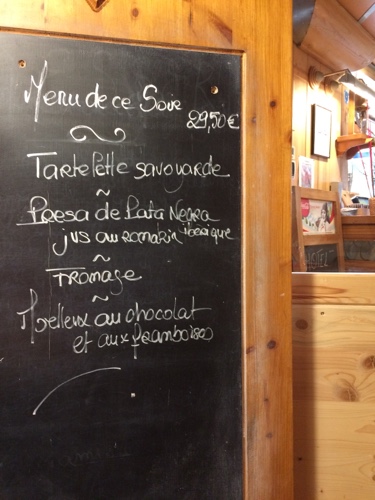 Menu de ce Soir
29,50 €
Tartelette savoyarde
~
Presa de Pata Negra
jus au romarin iberique
~
Fromage
~
Moelleux au chocolat
et aux framboises
HOTEL